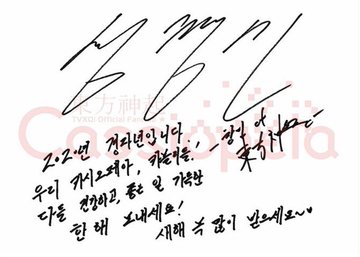 東方神起
TVXQ! Official Fan
Cassiopeia
2020년 경자년입니다
우리 카시오페아,
다들 건강하고, 좋은 일 가득한
한 해 보내세요!
새해 복 많이 받으세요~♡
-창민 of
東方神起-